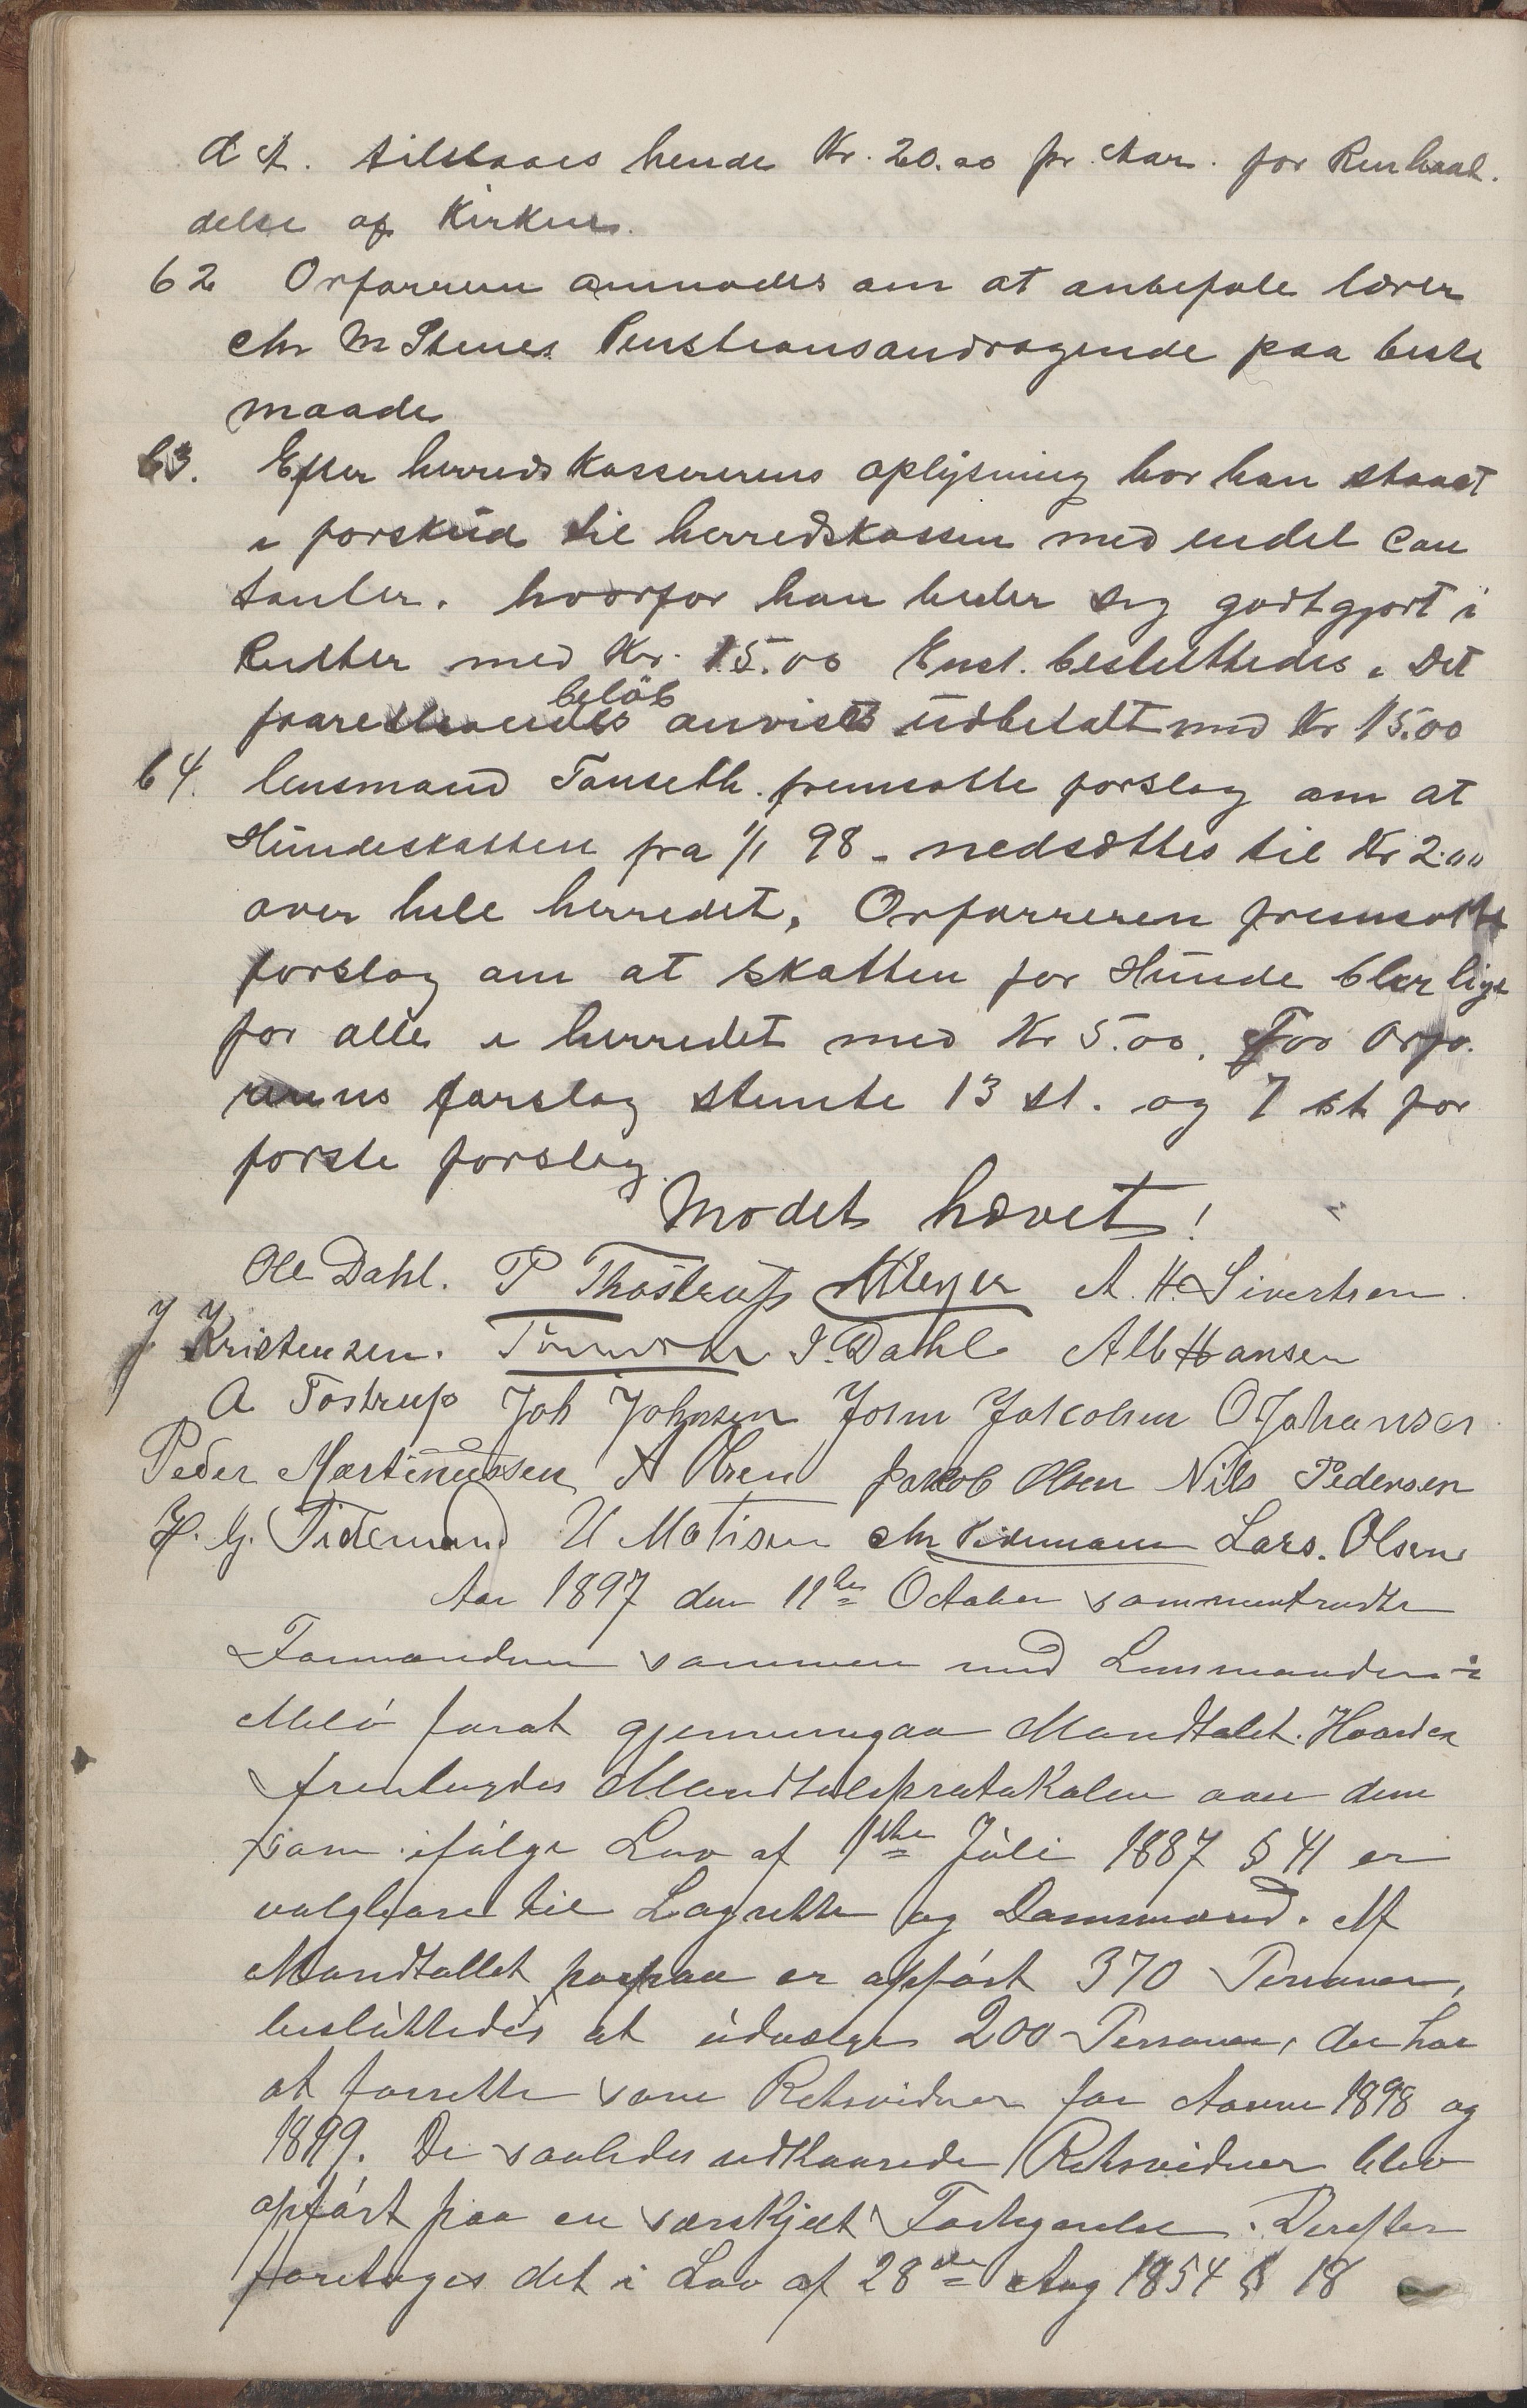 d A. tilstaaes hende Kr. 20.00 pr. Aar. for Renhaal.
delse af Kirken.
62 Orføreren anmodes om at anbefale lærer
Chr M Stenes Penstionsandragende paa beste
maade
63. Efter herredskassererens oplysning har han staaet
i forskud til herredskassen med endel Con
tanter. hvorfor han beder sig godtgjort i
Renter med Kr. 15.00 Enst. besluttedes. Det
belöb
anvises udbetalt med Kr 15.00
64. lensmand Tanseth. fremsatte forslag om at
Hundeskatten fra 1/1 98 - nedsættes til Kr 2.00
over hele herredet. Orføreren fremsatte
forslag om at skatten for Hunde bler lige
for alle i herredet med Kr 5.00. For Orfø.
rerens forslag stemte 13 st. og 7 st for
første forslag.
Mødet hævet!
Ole Dahl. P Thostrup Meyer A. H. Sivertsen.
J. Kristensen. J. Dahl Alb Hansen
A Tostrup Joh Johnsen John Jakobsen O Johansen
Peder Martinussen A Olsen Jakob Olsen Nils Pedersen
H. G. Tidemand U Matisen Chr Tidemann Lars. Olsen
Aar 1897 den 11te October sammentraadte
Formanden sammen med Lensmanden i
Melö forat gjennemgaa Mandtalet. Hvorder
fremlagdes Mandtalsprotokolen over dem
som ifølge Lov af 1ste Juli 1887 § 41 er
valgbare til Lagrette og Domsmænd. Af
Mandtallet hvorpaa er opført 370 Personer,
besluttedes at udvælges 200 Personer, der har
at forrette som Retsvidner for Aarene 1898 og
1899. De saaledes udkaarede Retsvidner blev
opført paa en særskjilt Fortegnelse. Derefter
foretages det i Lov af 28de Aug 1854 § 18